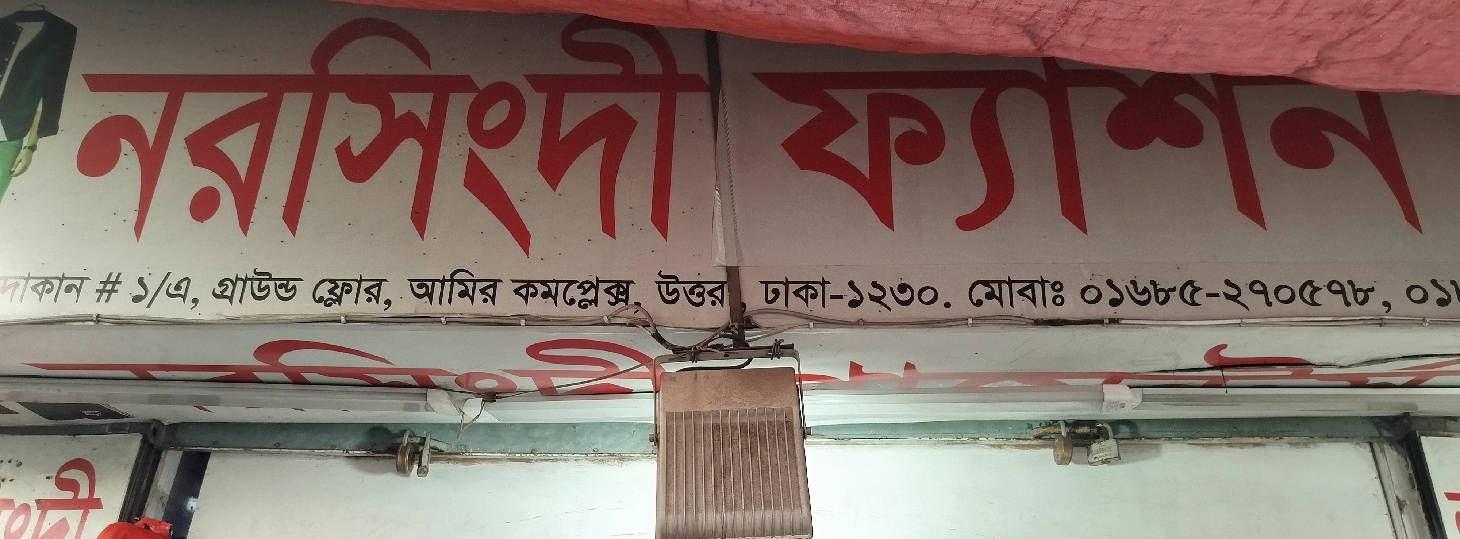 নরসিংদী ফ্যাশন
দোকান # ১/এ, গ্রাউন্ড ফ্লোর, আমির কমপ্লেক্স, উত্তরা, ঢাকা-১২৩০. মোবাঃ ০১৬৮৫-২৭০৫৭৮,